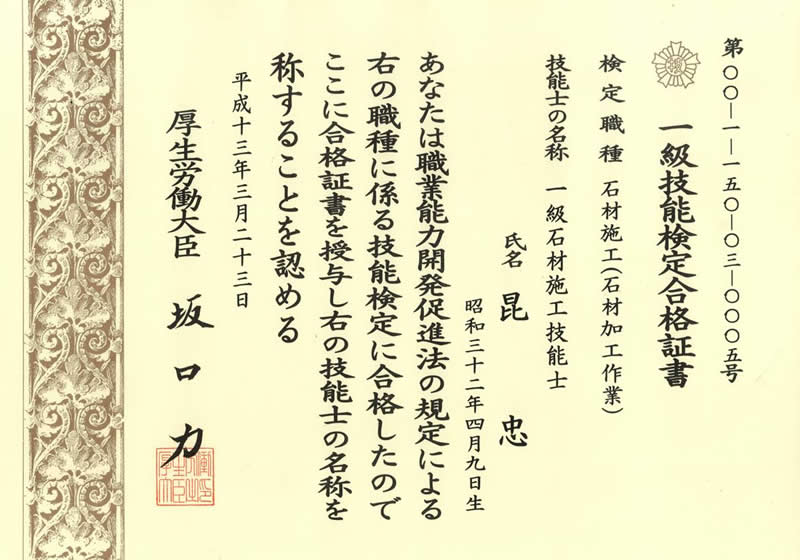 第〇〇―一―一五〇―〇三―〇〇〇五号
一級技能検定合格証書
検定職種 石材施工(石材加工作業)
技能士の名称 一級石材施工技能士
氏名 昆 忠
昭和三十二年四月九日生
あなたは職業能力開発促進法の規定による
右の職種に係る技能検定に合格したので
ここに合格証書を授与し右の技能士の名称を
称することを認める
平成十三年三月二十三日
厚生労働大臣 坂口力